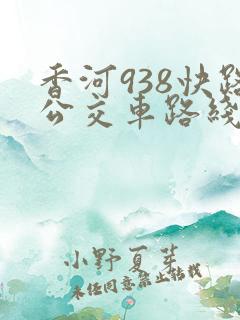 香河938快路
公交车路线
小野夏芽
未经同意禁止转载